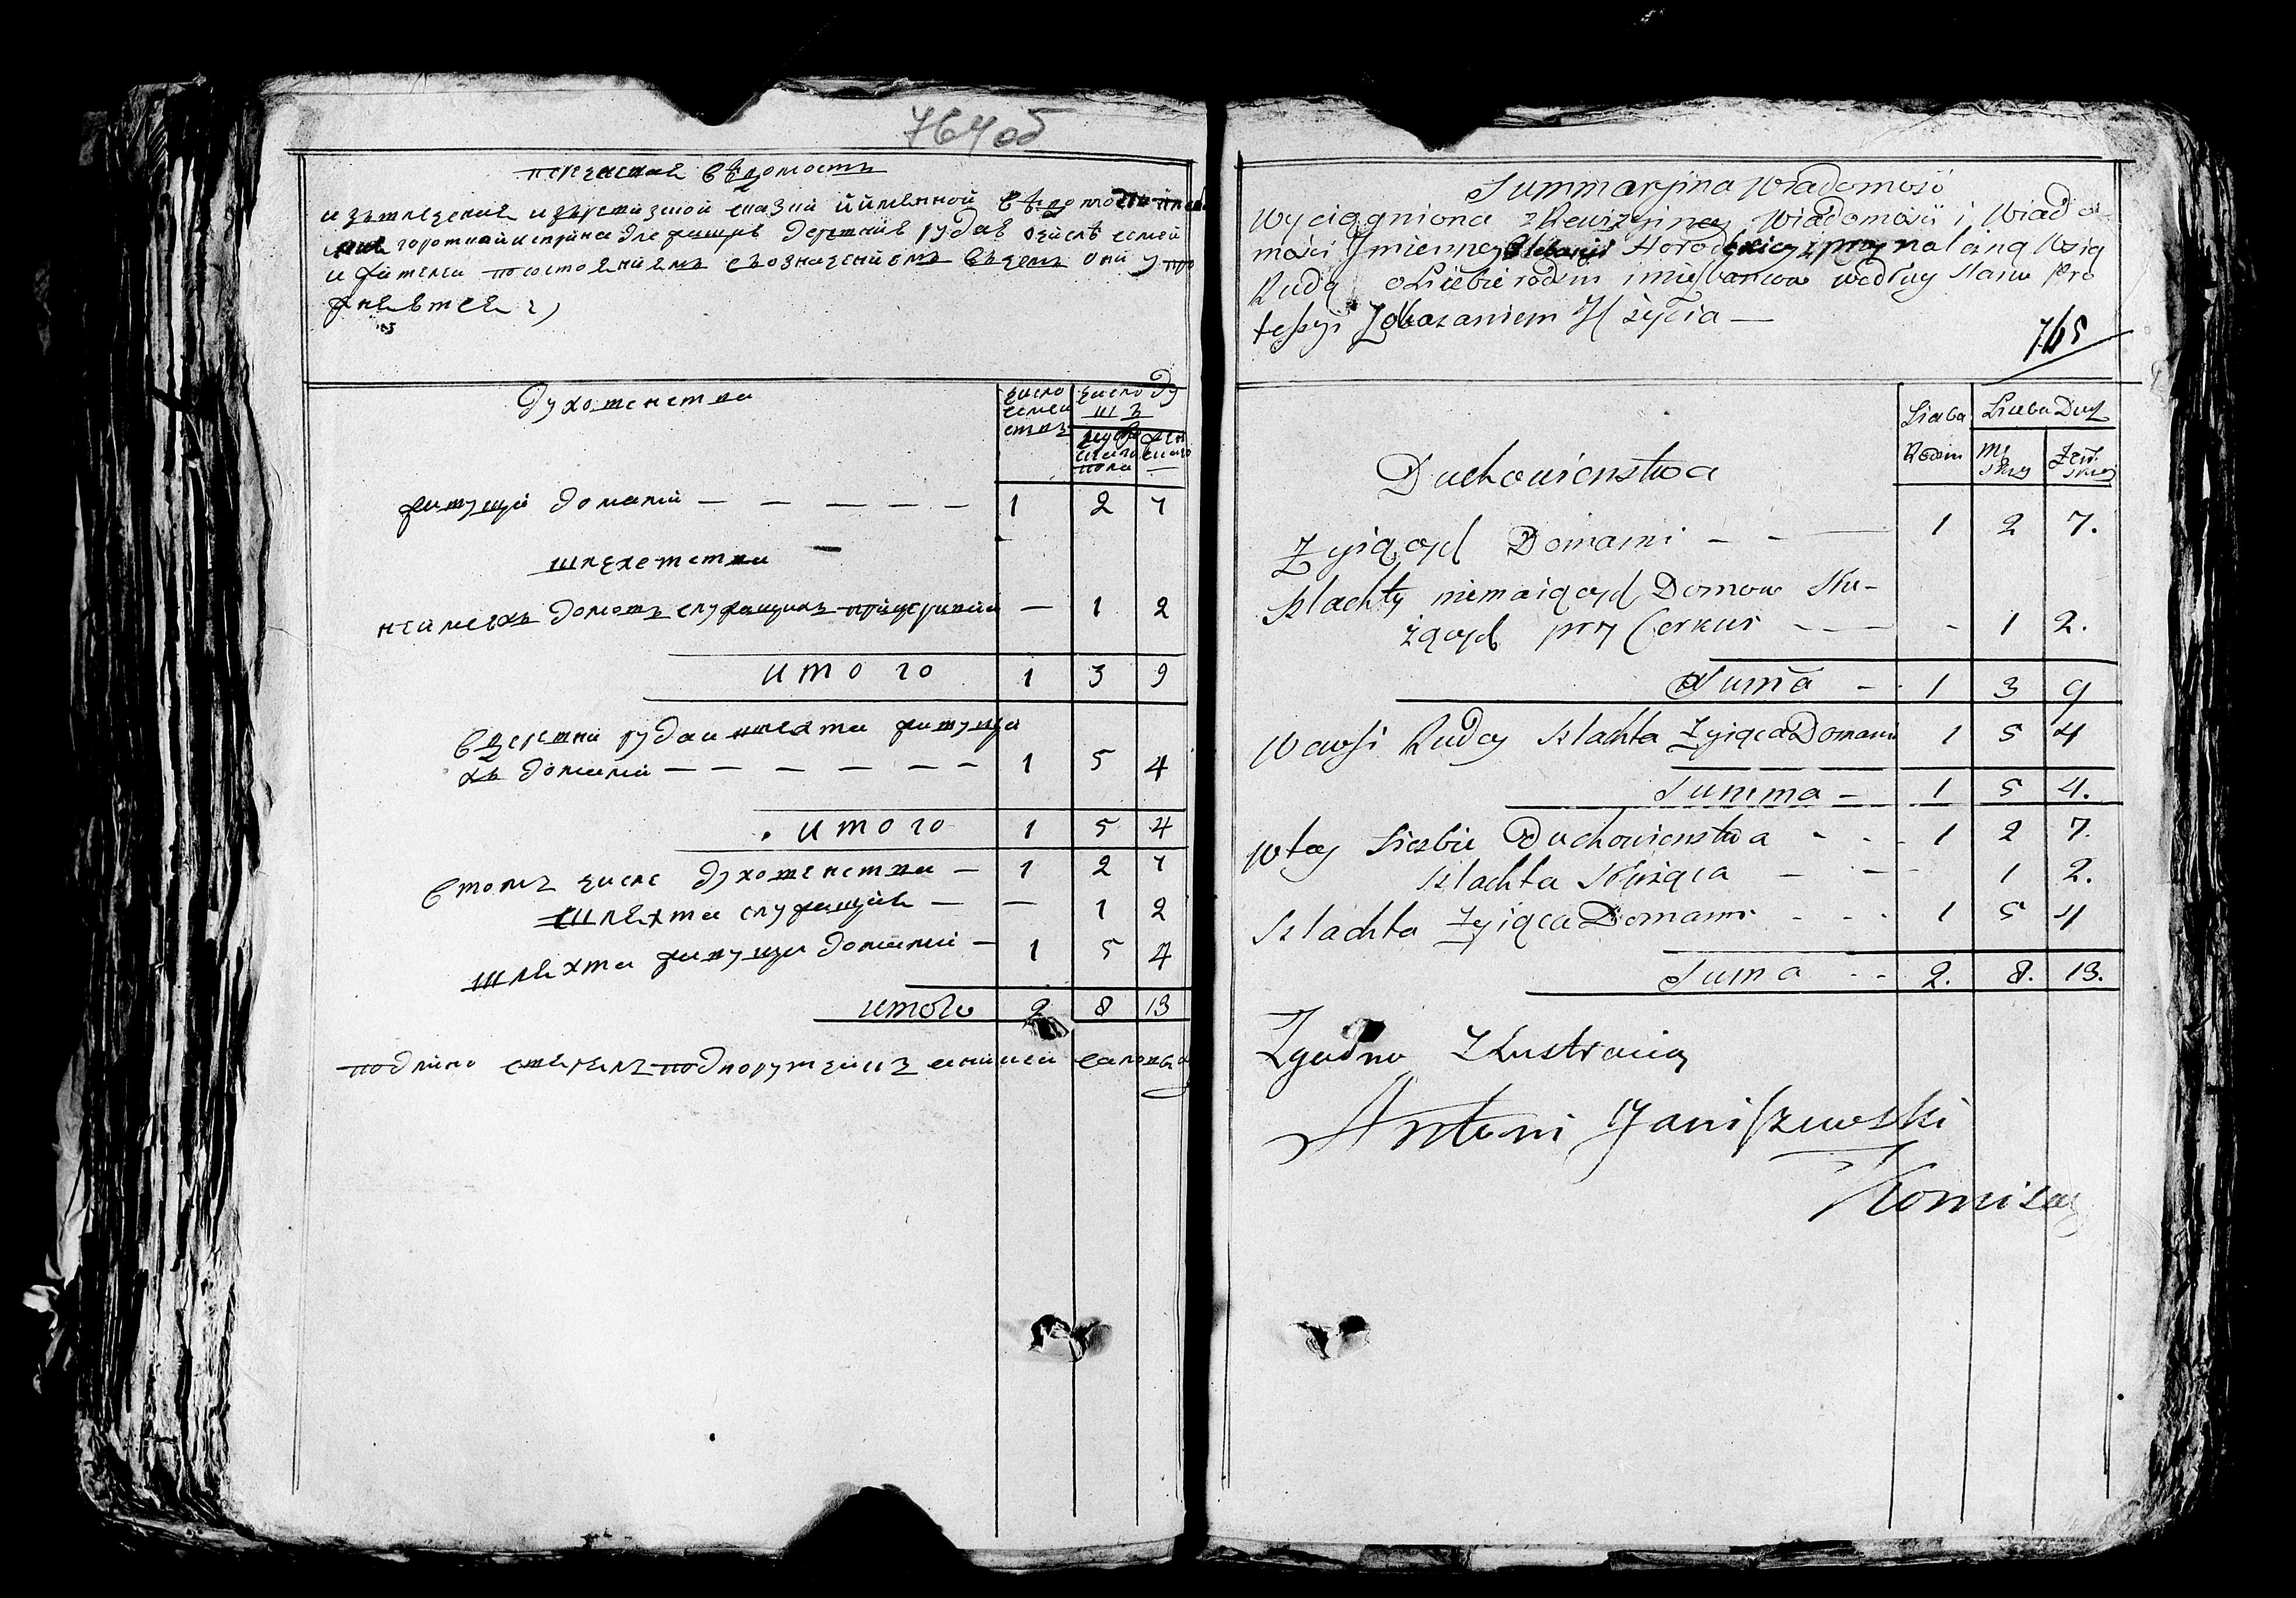 764 об
перечневая вѣдомость
извлечения изревизской сказки и именной вѣдомости
городницкой деревне рудае очислѣ семей
и жителей посостояниямъ съозначениемъ вчемъ они упро
жняются
духовенства
число
семей
ствъ
число ду
шъ
мужс
скаго
пола
жен
скаго
живущи домами — — — — — 1 2 7
шляхетства
неимеюхъ домовъ служащихъ прицеркви — 1 2
итого 1 3 9
вдеревни рудаи шляхта живуща
хъ домами — — — — — — 1 5 4
итого 1 5 4
втомъ числе духовенства — 1 2 7
шляхта служащия — — 1 2
шляхта живуща домами — 1 5 4
итого 2 8 13
подлино
Summaryjna Wiadomość
Wyciągniona zRewizyjney Wiadomości i Wiado
mości Jmienney Plebanji Horodnickiey zprzynależną Wsią
Rudą oLiczbie rodzin imieszkancow według stanu Pro
fessyi Zokazaniem Jch życia —
765
Liczba
Rodzin
Liczba Dusz
Mę
skiey
Żeń
skiey
Duchowienstwa
Zyiących Domami — — — 1 2 7.
Szlachty niemaiących Domow Słu-
żących przy Cerkwi — — — - 1 2.
Suma — 1 3 9
Wewsi Rudzy Szlachta ZyiącaDomami 1 5 4
Summa — 1 5 4.
Wtey Liczbie Duchowienstwa - - - 1 2 7.
Szlachta Służąca — — - 1 2.
Szlachta ZyiącaDomami - - - 1 5 4
Suma - - 2. 8. 13.
Zgodno ZLustracią
Antoni Janiszewski
Komisarz